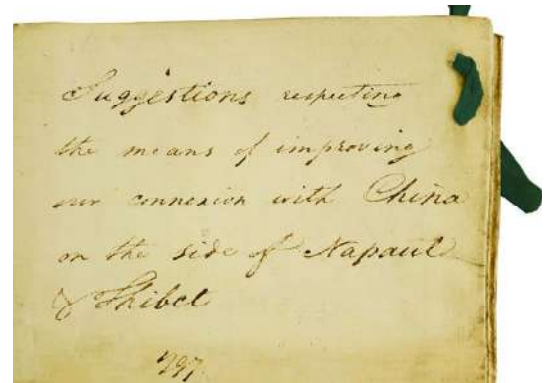 Suggestions respecting
the means of improving
our connexion with China
on the side of Napaul
& Thibet
797.